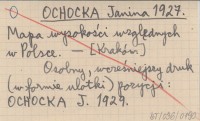 O OCHOCKA Janina 1927.
Mapa wysokości względnych
w Polsce. — [Kraków]
Osobny, wcześniejszy druk
(w formie ulotki) pozycji:
OCHOCKA J. 1929.